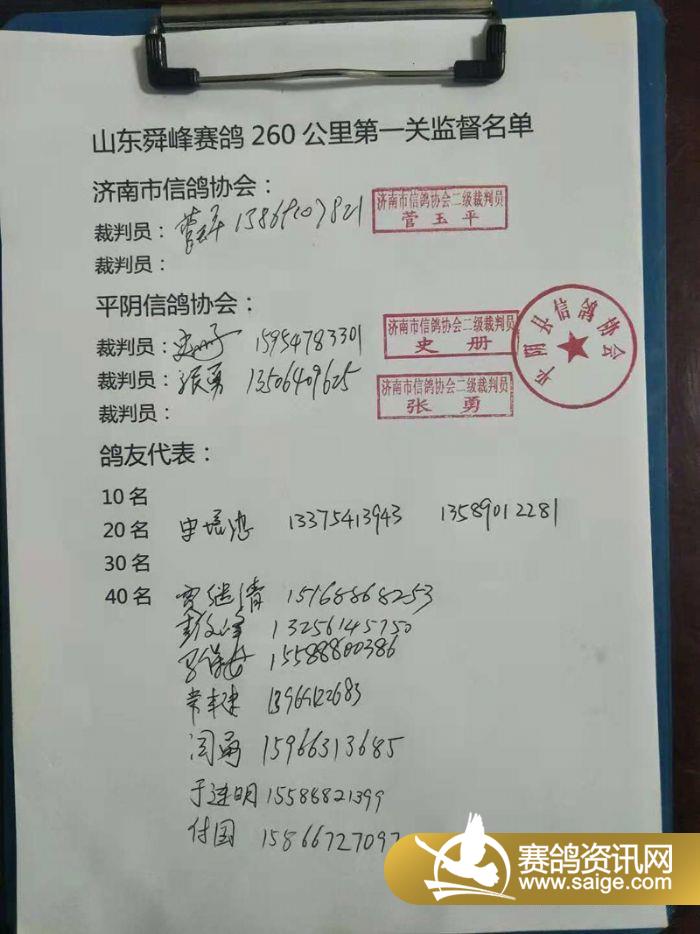 山东舜峰赛鸽 260 公里第一关监督名单
济南市信鸽协会：
裁判员：菅玉平
济南市信鸽协会二级裁判员
菅玉平
裁判员：
平阴信鸽协会：
裁判员：史册 15954783301
济南市信鸽协会二级裁判员
史册
平阴县信鸽协会
裁判员：张勇 13506409625
济南市信鸽协会二级裁判员
张勇
裁判员：
鸽友代表：
10 名
20 名 13375413943 13589012281
30 名
40 名 贾继清 15168868253
13256145750
15588800386
常丰建
闫勇 15966313685
于连明 15588821399
付国 15866727097
赛鸽资讯网
www.saige.com